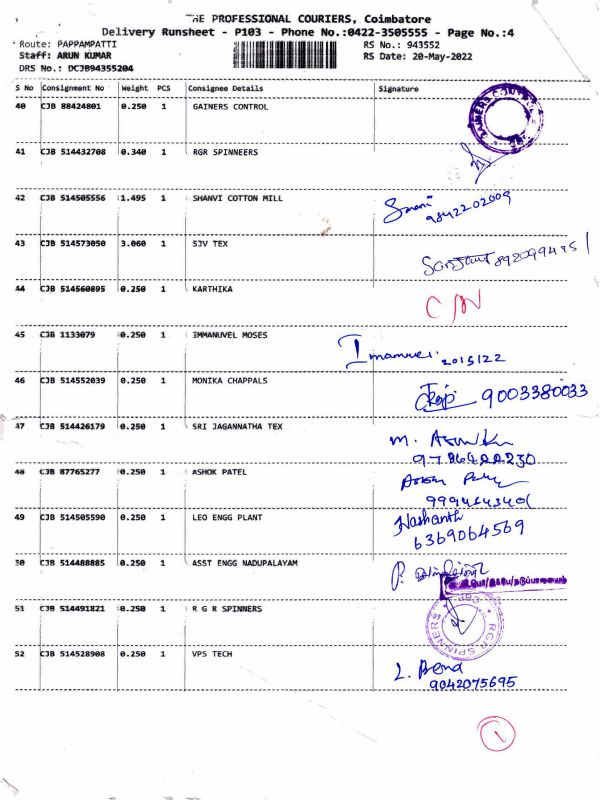 THE PROFESSIONAL COURIERS, Coimbatore
Delivery Runsheet - P103 - Phone No.:0422-3505555 - Page No.:4
Route: PAPPAMPATTI RS No.: 943552
Staff: ARUN KUMAR RS Date: 20-May-2022
DRS No.: DCJB94355204
S No Consignment No Weight PCS Consignee Details Signature
40 CJB 88424801 0.250 1 GAINERS CONTROL
41 CJB 514432708 0.340 1 RGR SPINNEERS
42 CJB 514505556 1.495 1 SHANVI COTTON MILL
9842202009
43 CJB 514573050 3.060 1 SJV TEX
8920994951
44 CJB 514560895 0.250 1 KARTHIKA
C/N
45 CJB 1133079 0.250 1 IMMANUVEL MOSES
Imamuvel 2015122
46 CJB 514552039 0.250 1 MONIKA CHAPPALS
9003380033
47 CJB 514426179 0.250 1 SRI JAGANNATHA TEX
M.
48 CJB 87765277 0.250 1 ASHOK PATEL
49 CJB 514505590 0.250 1 LEO ENGG PLANT
Hashanth
6369064569
50 CJB 514488885 0.250 1 ASST ENGG NADUPALAYAM
P.
51 CJB 514491821 0.250 1 R G R SPINNERS
RGR SPINNERS
52 CJB 514528908 0.250 1 VPS TECH
L. Bena
9042075695
1